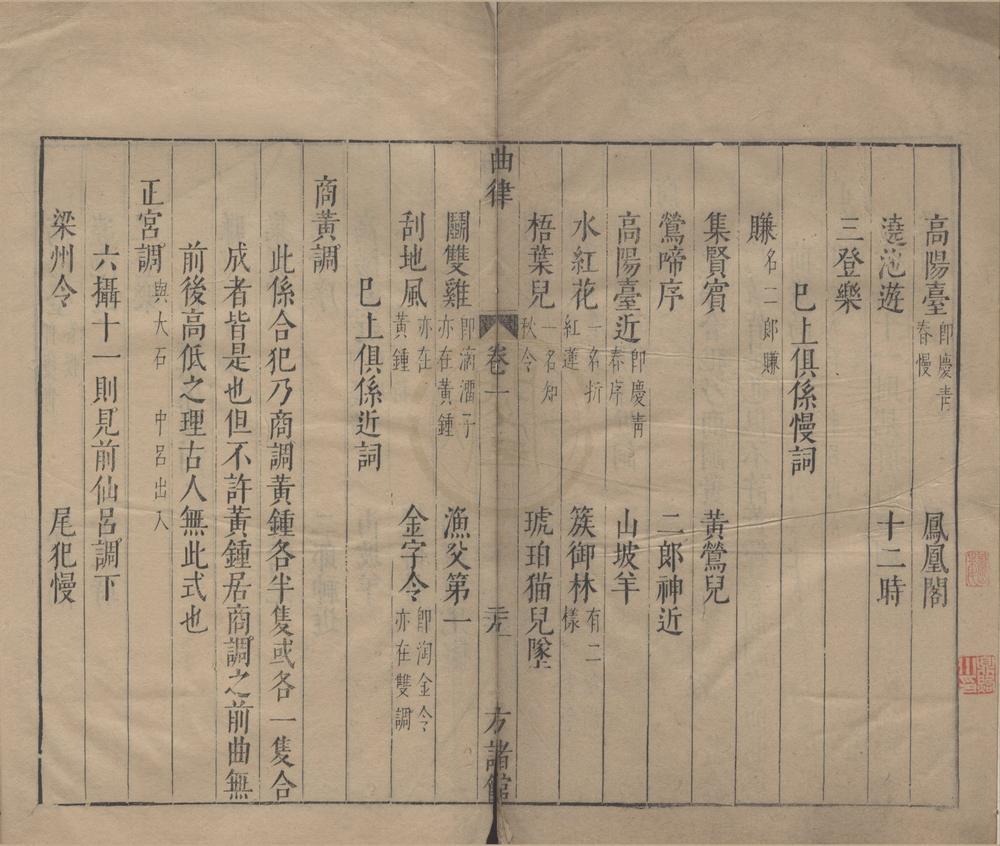 高陽臺即慶青春慢　鳳凰閣
澆池遊　十二時
三登樂
巳上俱係慢詞
賺名二郎賺
集賢賓　黃鶯兒
鶯啼序　二郎神近
高陽臺近即慶青春序　山坡羊
水紅花一名折紅蓮　簇御林有二樣
梧葉兒一名知秋令　琥珀猫兒墜
曲律　卷一　方諸館
鬭雙雞即滴溜子亦在黃鍾　漁父第一
刮地風亦在黃鍾　金字令即淘金令亦在雙調
巳上俱係近詞
商黃調
此係合犯乃商調黃鍾各半隻或各一隻合
成者皆是也但不許黃鍾居商調之前曲無
前後高低之理古人無此式也
正宮調與大石中呂出入
六攝十一則見前仙呂調下
梁州令　尾犯慢